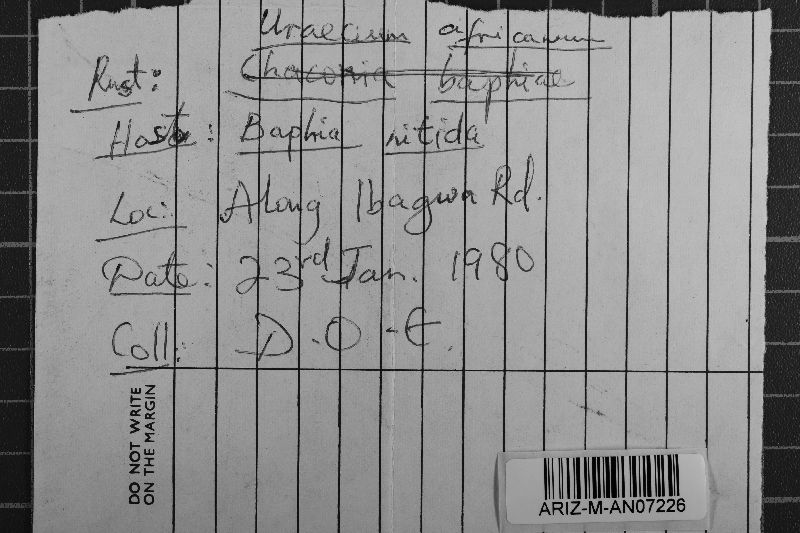 Uraecium africanum
Rust: Chaconia baphiae
Host: Baphia nitida
Loc: Along Ibagwa Rd.
Date: 23rd Jan. 1980
Coll: D.O.E.
DO NOT WRITE
ON THE MARGIN
ARIZ-M-AN07226